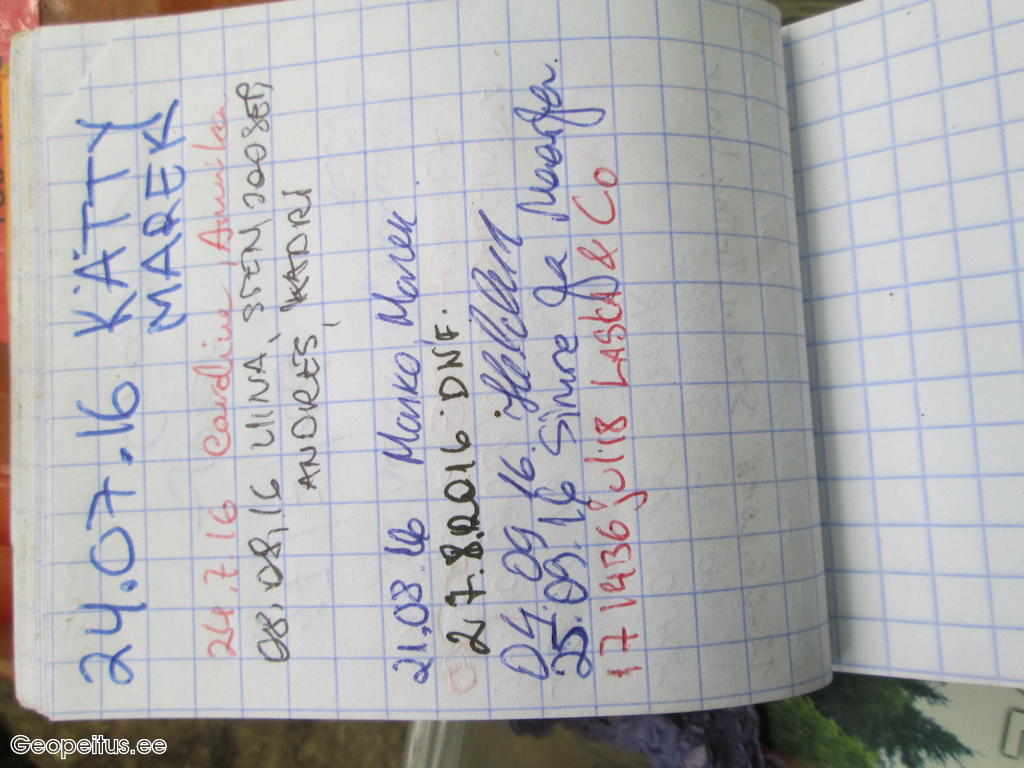 24.07.16 KÄTTY
MAREK
24.7.16 Caroline, Annika
08.08.16 LIINA, STEN, JOOSEP,
ANDRES, KADRI
21.08.16 Marko, Marek
27.8.2016 DNF.
04.09.16.
25.09.16 Sirure ja
17 1436 juli18 LASCAD & Co
Geopeitus.ee